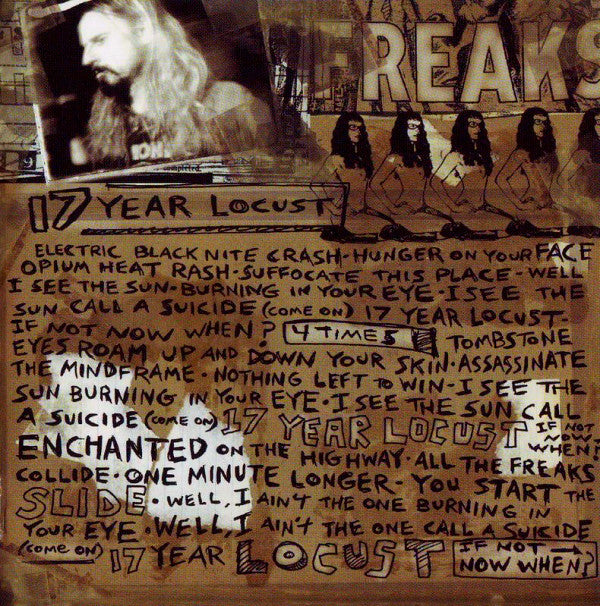 FREAKS
17 YEAR LOCUST
ELECTRIC BLACK NITE CRASH · HUNGER ON YOUR FACE
OPIUM HEAT RASH · SUFFOCATE THIS PLACE - WELL
I SEE THE SUN - BURNING IN YOUR EYE · I SEE THE
SUN CALL A SUICIDE (COME ON) 17 YEAR LOCUST -
IF NOT NOW WHEN? 4 TIMES TOMBSTONE
EYES ROAM UP AND DOWN YOUR SKIN · ASSASSINATE
THE MINDFRAME · NOTHING LEFT TO WIN - I SEE THE
SUN BURNING IN YOUR EYE · I SEE THE SUN CALL
A SUICIDE (COME ON) 17 YEAR LOCUST IF NOT NOW WHEN?
ENCHANTED ON THE HIGHWAY · ALL THE FREAKS
COLLIDE · ONE MINUTE LONGER - YOU START THE
SLIDE · WELL, I AIN'T THE ONE BURNING IN
YOUR EYE · WELL, I AIN'T THE ONE CALL A SUICIDE
(COME ON) 17 YEAR LOCUST IF NOT → NOW WHEN?